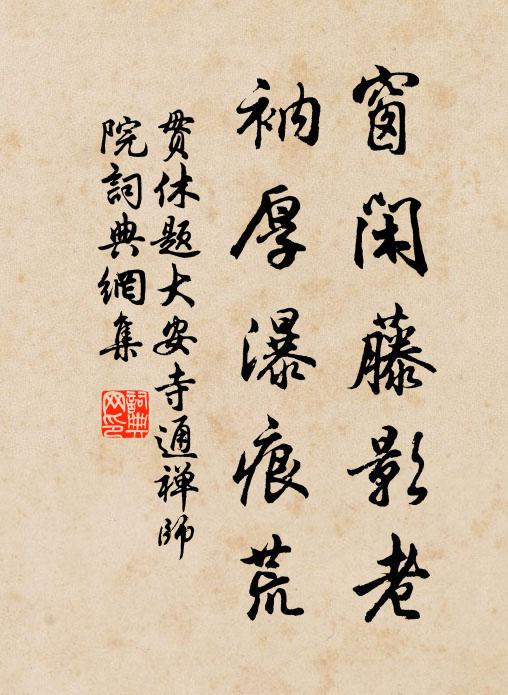 窗閑藤影老
衲厚瀑痕荒
贯休题大安寺通禅师
院詞典網集
詞典
网印